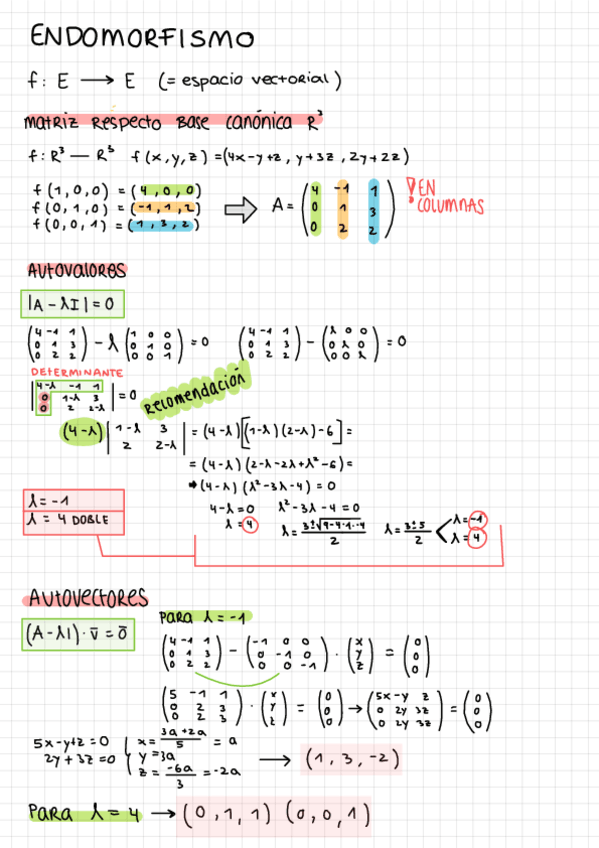 ENDOMORFISMO
f: E → E (= espacio vectorial)
MATRIZ RESPECTO BASE CANÓNICA R³
f: R³ — R³ f(x,y,z) = (4x-y+z, y+3z, 2y+2z)
f(1,0,0) = (4,0,0)
f(0,1,0) = (-1,1,2)
f(0,0,1) = (1,3,2)
⇒ A = (4 -1 1
0 1 3
0 2 2)
! EN
COLUMNAS
AUTOVALORES
|A - λI| = 0
(4 -1 1
0 1 3
0 2 2) - λ (1 0 0
0 1 0
0 0 1) = 0
(4 -1 1
0 1 3
0 2 2) - (λ 0 0
0 λ 0
0 0 λ) = 0
DETERMINANTE
|4-λ -1 1
0 1-λ 3
0 2 2-λ| = 0
Recomendación
(4-λ) |1-λ 3
2 2-λ| = (4-λ)[(1-λ)(2-λ)-6] =
= (4-λ)(2-λ-2λ+λ²-6) =
→ (4-λ)(λ²-3λ-4) = 0
4-λ=0 λ²-3λ-4=0
λ=4 λ = 3±√9-4·1·-4 / 2 λ = 3±5 / 2 < λ=-1
λ=4
λ = -1
λ = 4 DOBLE
AUTOVECTORES
(A-λI)·v̄ = ō
PARA λ = -1
(4 -1 1
0 1 3
0 2 2) - (-1 0 0
0 -1 0
0 0 -1) · (x
y
z) = (0
0
0)
(5 -1 1
0 2 3
0 2 3) · (x
y
z) = (0
0
0) → (5x -y z
0 2y 3z
0 2y 3z) = (0
0
0)
5x-y+z=0
2y+3z=0
x = 3a+2a / 5 = a
y = 3a
z = -6a / 3 = -2a
→ (1, 3, -2)
PARA λ = 4 → (0,1,1) (0,0,1)